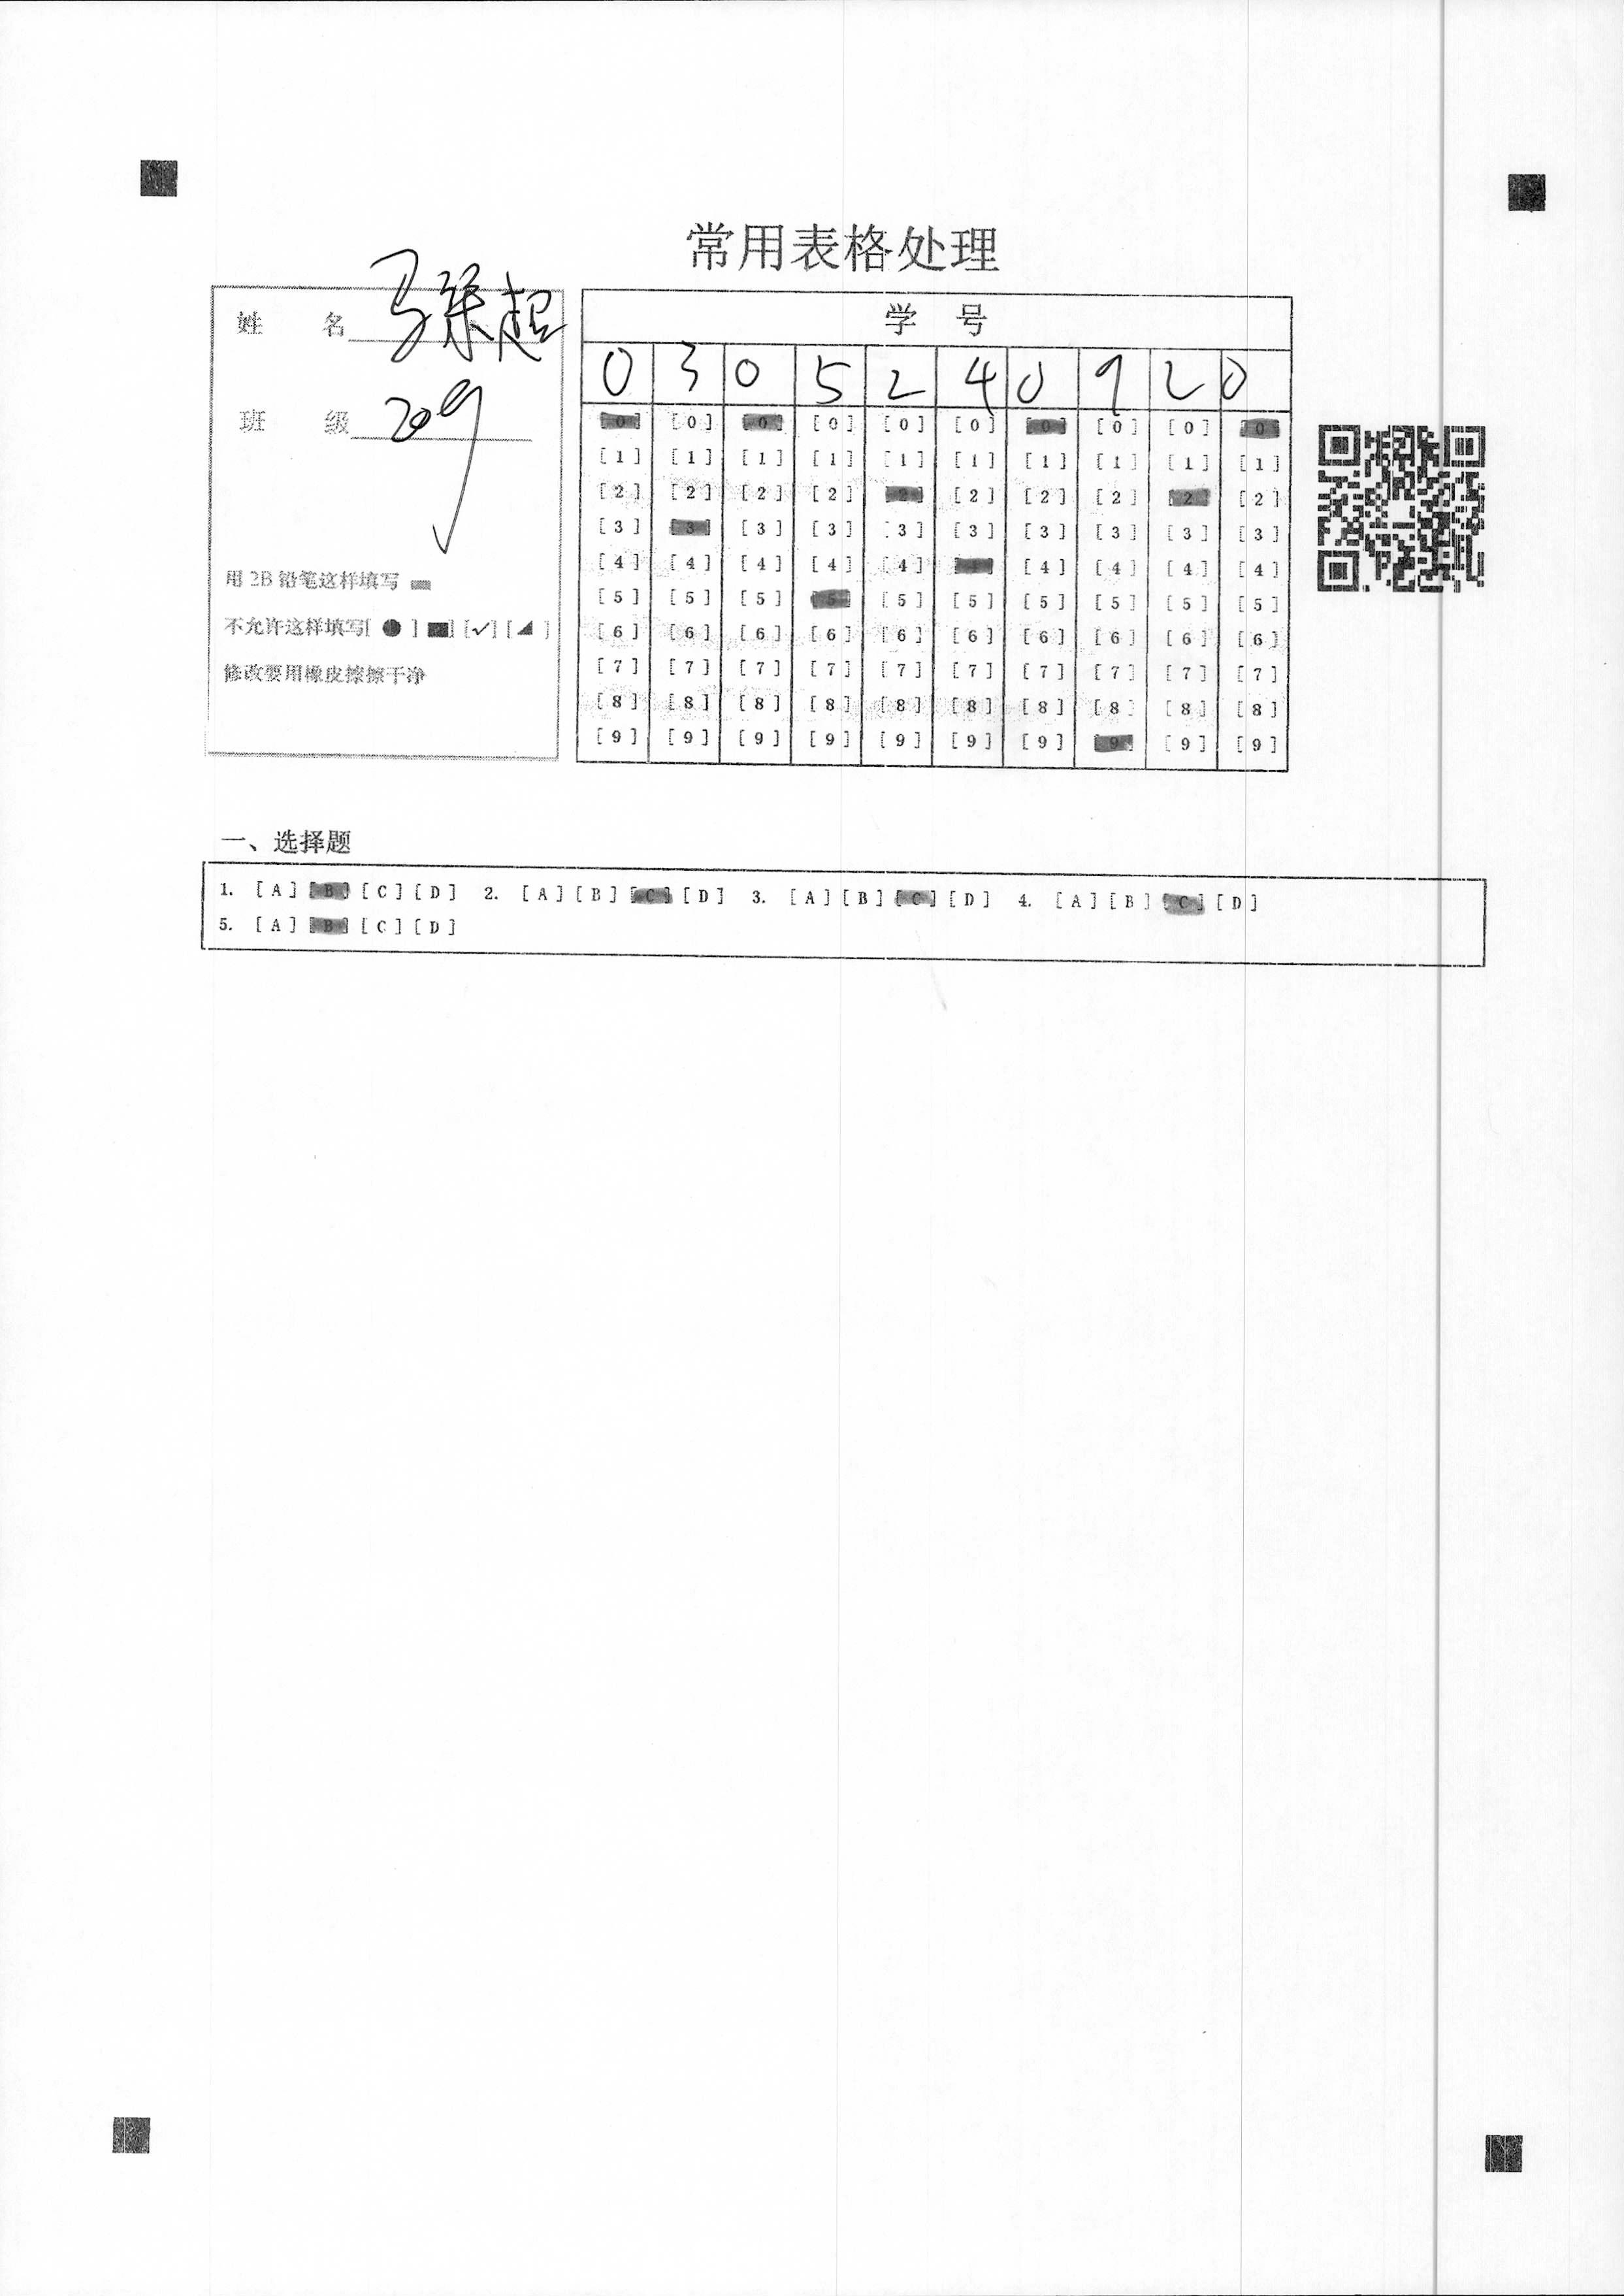 常用表格处理
姓 名 马 超
班 级 209
用 2B 铅笔这样填写
不允许这样填写[ ● ] ■] [✓] [◢ ]
修改要用橡皮擦擦干净
学 号
0 3 0 5 2 4 0 9 2 0
[0] [0] [0] [0] [0] [0] [0] [0] [0] [0]
[1] [1] [1] [1] [1] [1] [1] [1] [1] [1]
[2] [2] [2] [2] [2] [2] [2] [2] [2] [2]
[3] [3] [3] [3] [3] [3] [3] [3] [3] [3]
[4] [4] [4] [4] [4] [4] [4] [4] [4] [4]
[5] [5] [5] [5] [5] [5] [5] [5] [5] [5]
[6] [6] [6] [6] [6] [6] [6] [6] [6] [6]
[7] [7] [7] [7] [7] [7] [7] [7] [7] [7]
[8] [8] [8] [8] [8] [8] [8] [8] [8] [8]
[9] [9] [9] [9] [9] [9] [9] [9] [9] [9]
一、选择题
1. [A] [B] [C] [D] 2. [A] [B] [C] [D] 3. [A] [B] [C] [D] 4. [A] [B] [C] [D]
5. [A] [B] [C] [D]